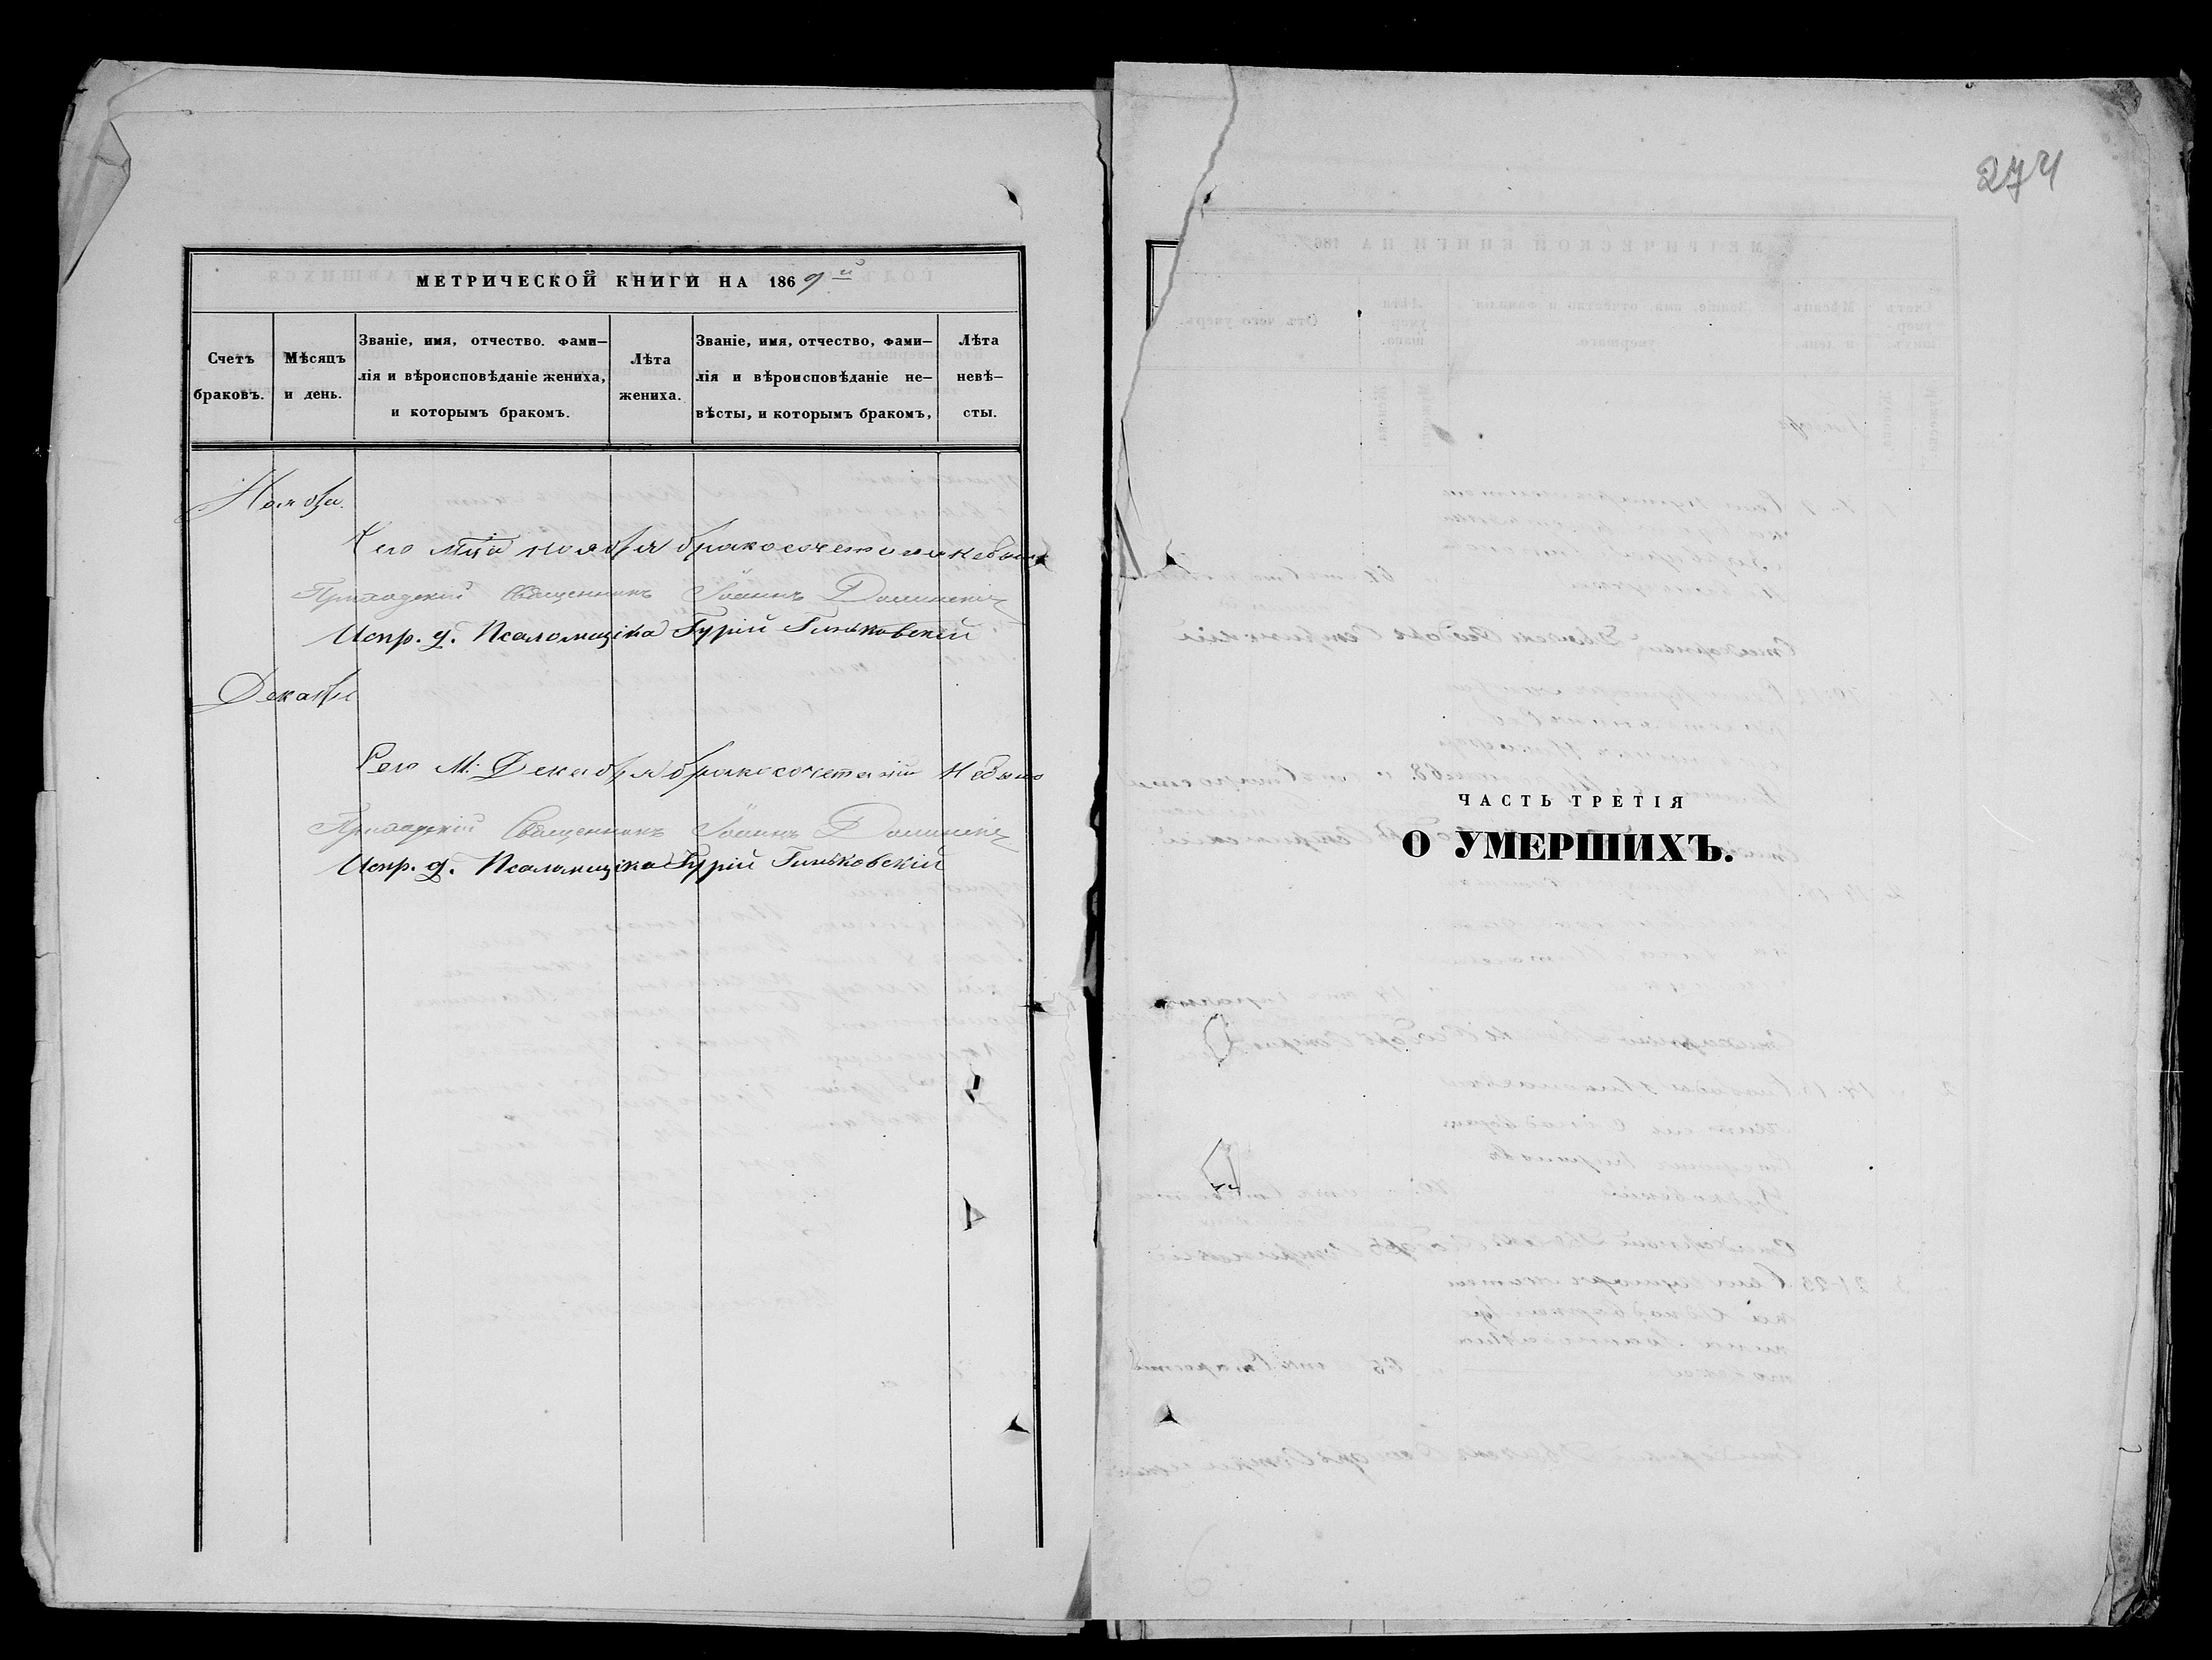 МЕТРИЧЕСКОЙ КНИГИ НА 1869й
Счетъ браковъ.
Мѣсяцъ и день.
Званіе, имя, отчество. фами–
лія и вѣроисповѣданіе жениха,
и которымъ бракомъ.
Лѣта жениха.
Званіе, имя, отчество, фами–
лія и вѣроисповѣданіе не–
вѣсты, и которымъ бракомъ,
Лѣта невѣ–
сты.
Ноября
Сего мца ноября бракосочетанія небыло
Приходскій Священникъ Іоаннъ
Испр. д. Псаломщика Гурій Гиньковскій
Декабря
Сего М: Декабря бракосочетаній небыло
Приходскій Священникъ Іоаннъ
Испр. д. Псаломщика Гурій Гиньковскій
274
ЧАСТЬ ТРЕТІЯ
О УМЕРШИХЪ.